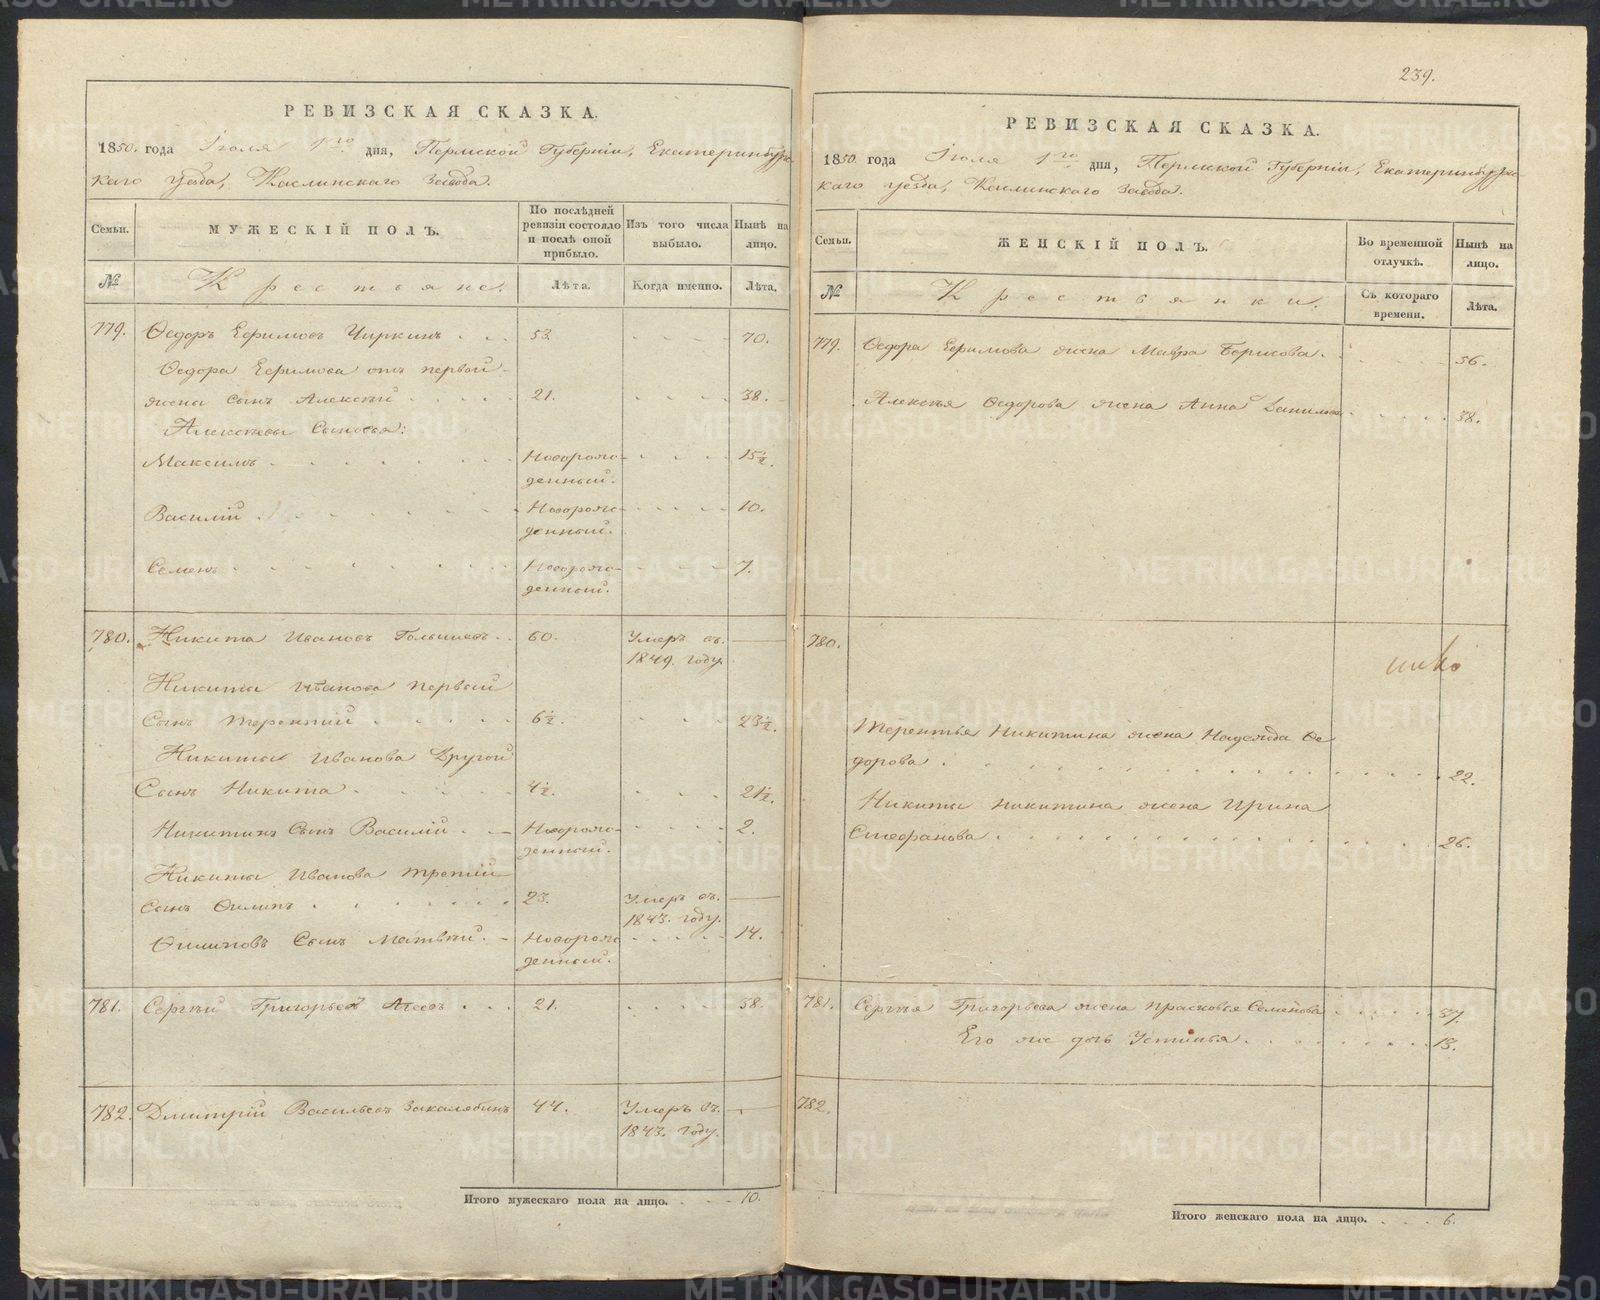 РЕВИЗСКАЯ СКАЗКА.
1850. года Іюля 1го дня, Пермской Губерніи, Екатеринбургс-
каго уезда, Каслинскаго завода.
Семьи. МУЖЕСКІЙ ПОЛЪ. По послѣдней ревизіи состояло и послѣ оной прибыло. Изъ того числа выбыло. Нынѣ на лицо.
№ Крестьяне. Лѣта. Когда именно. Лѣта.
779. Ѳедоръ Ефимовъ Чиркинъ 53. 70.
Ѳедора Ефимова отъ первой
жены сынъ Алексѣй 21. 38.
Алексѣевы Сыновья:
Максимъ Новорож- 15½.
денный.
Василій Новорож- 10.
денный.
Семенъ Новорож- 7.
денный.
780. Никита Ивановъ 60. Умеръ въ
1849. году.
Никиты Иванова первый
Сынъ Терентій 6½. 23½.
Никиты Иванова Другой
Сынъ Никита 4½. 21½.
Никитинъ Сынъ Василій Новорож- 2.
денный.
Никиты Иванова третій
сынъ Филипъ 23. Умеръ въ
1843. году.
Филиповъ Сынъ Матвѣй Новорож- 14.
денный.
781. Сергѣй Григорьевъ 21. 38.
782. Дмитрій Васильевъ Закалябинъ 44. Умеръ въ
1843. году.
Итого мужескаго пола на лицо. 10.
239.
РЕВИЗСКАЯ СКАЗКА.
1850. года Іюля 1го дня, Пермской Губерніи, Екатеринбургс-
каго уезда, Каслинскаго завода.
Семьи. ЖЕНСКІЙ ПОЛЪ. Во временной отлучкѣ. Нынѣ на лицо.
№ Крестьянки. Съ котораго времени. Лѣта.
779. Ѳедора Ефимова жена Мавра Борисова. 56.
Алексѣя Ѳедорова жена Анна Данилова 38.
780.
Терентья Никитина жена Надежда Ѳе
дорова 22.
Никиты Никитина жена Ирина
Стефанова 26.
781. Сергѣя Григорьева жена Прасковья Семенова 37.
Его же дочь Устинья 13.
782.
Итого женскаго пола на лицо. 6.
METRIKI.GASO-URAL.RU